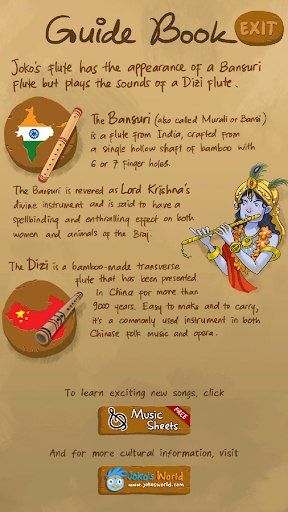 Guide Book
EXIT
Joko's flute has the appearance of a Bansuri
flute but plays the sounds of a Dizi flute.
The Bansuri (also called Murali or Bansi)
is a flute from India, crafted from
a single hollow shaft of bamboo with
6 or 7 finger holes.
The Bansuri is revered as Lord Krishna's
divine instrument and is said to have a
spellbinding and enthralling effect on both
women and animals of the Braj.
The Dizi is a bamboo-made transverse
flute that has been presented
in China for more than
9000 years. Easy to make and to carry,
it's a commonly used instrument in both
Chinese folk music and opera.
To learn exciting new songs, click
Music
Sheets
FREE
And for more cultural information, visit
Joko's World
www.jokosworld.com